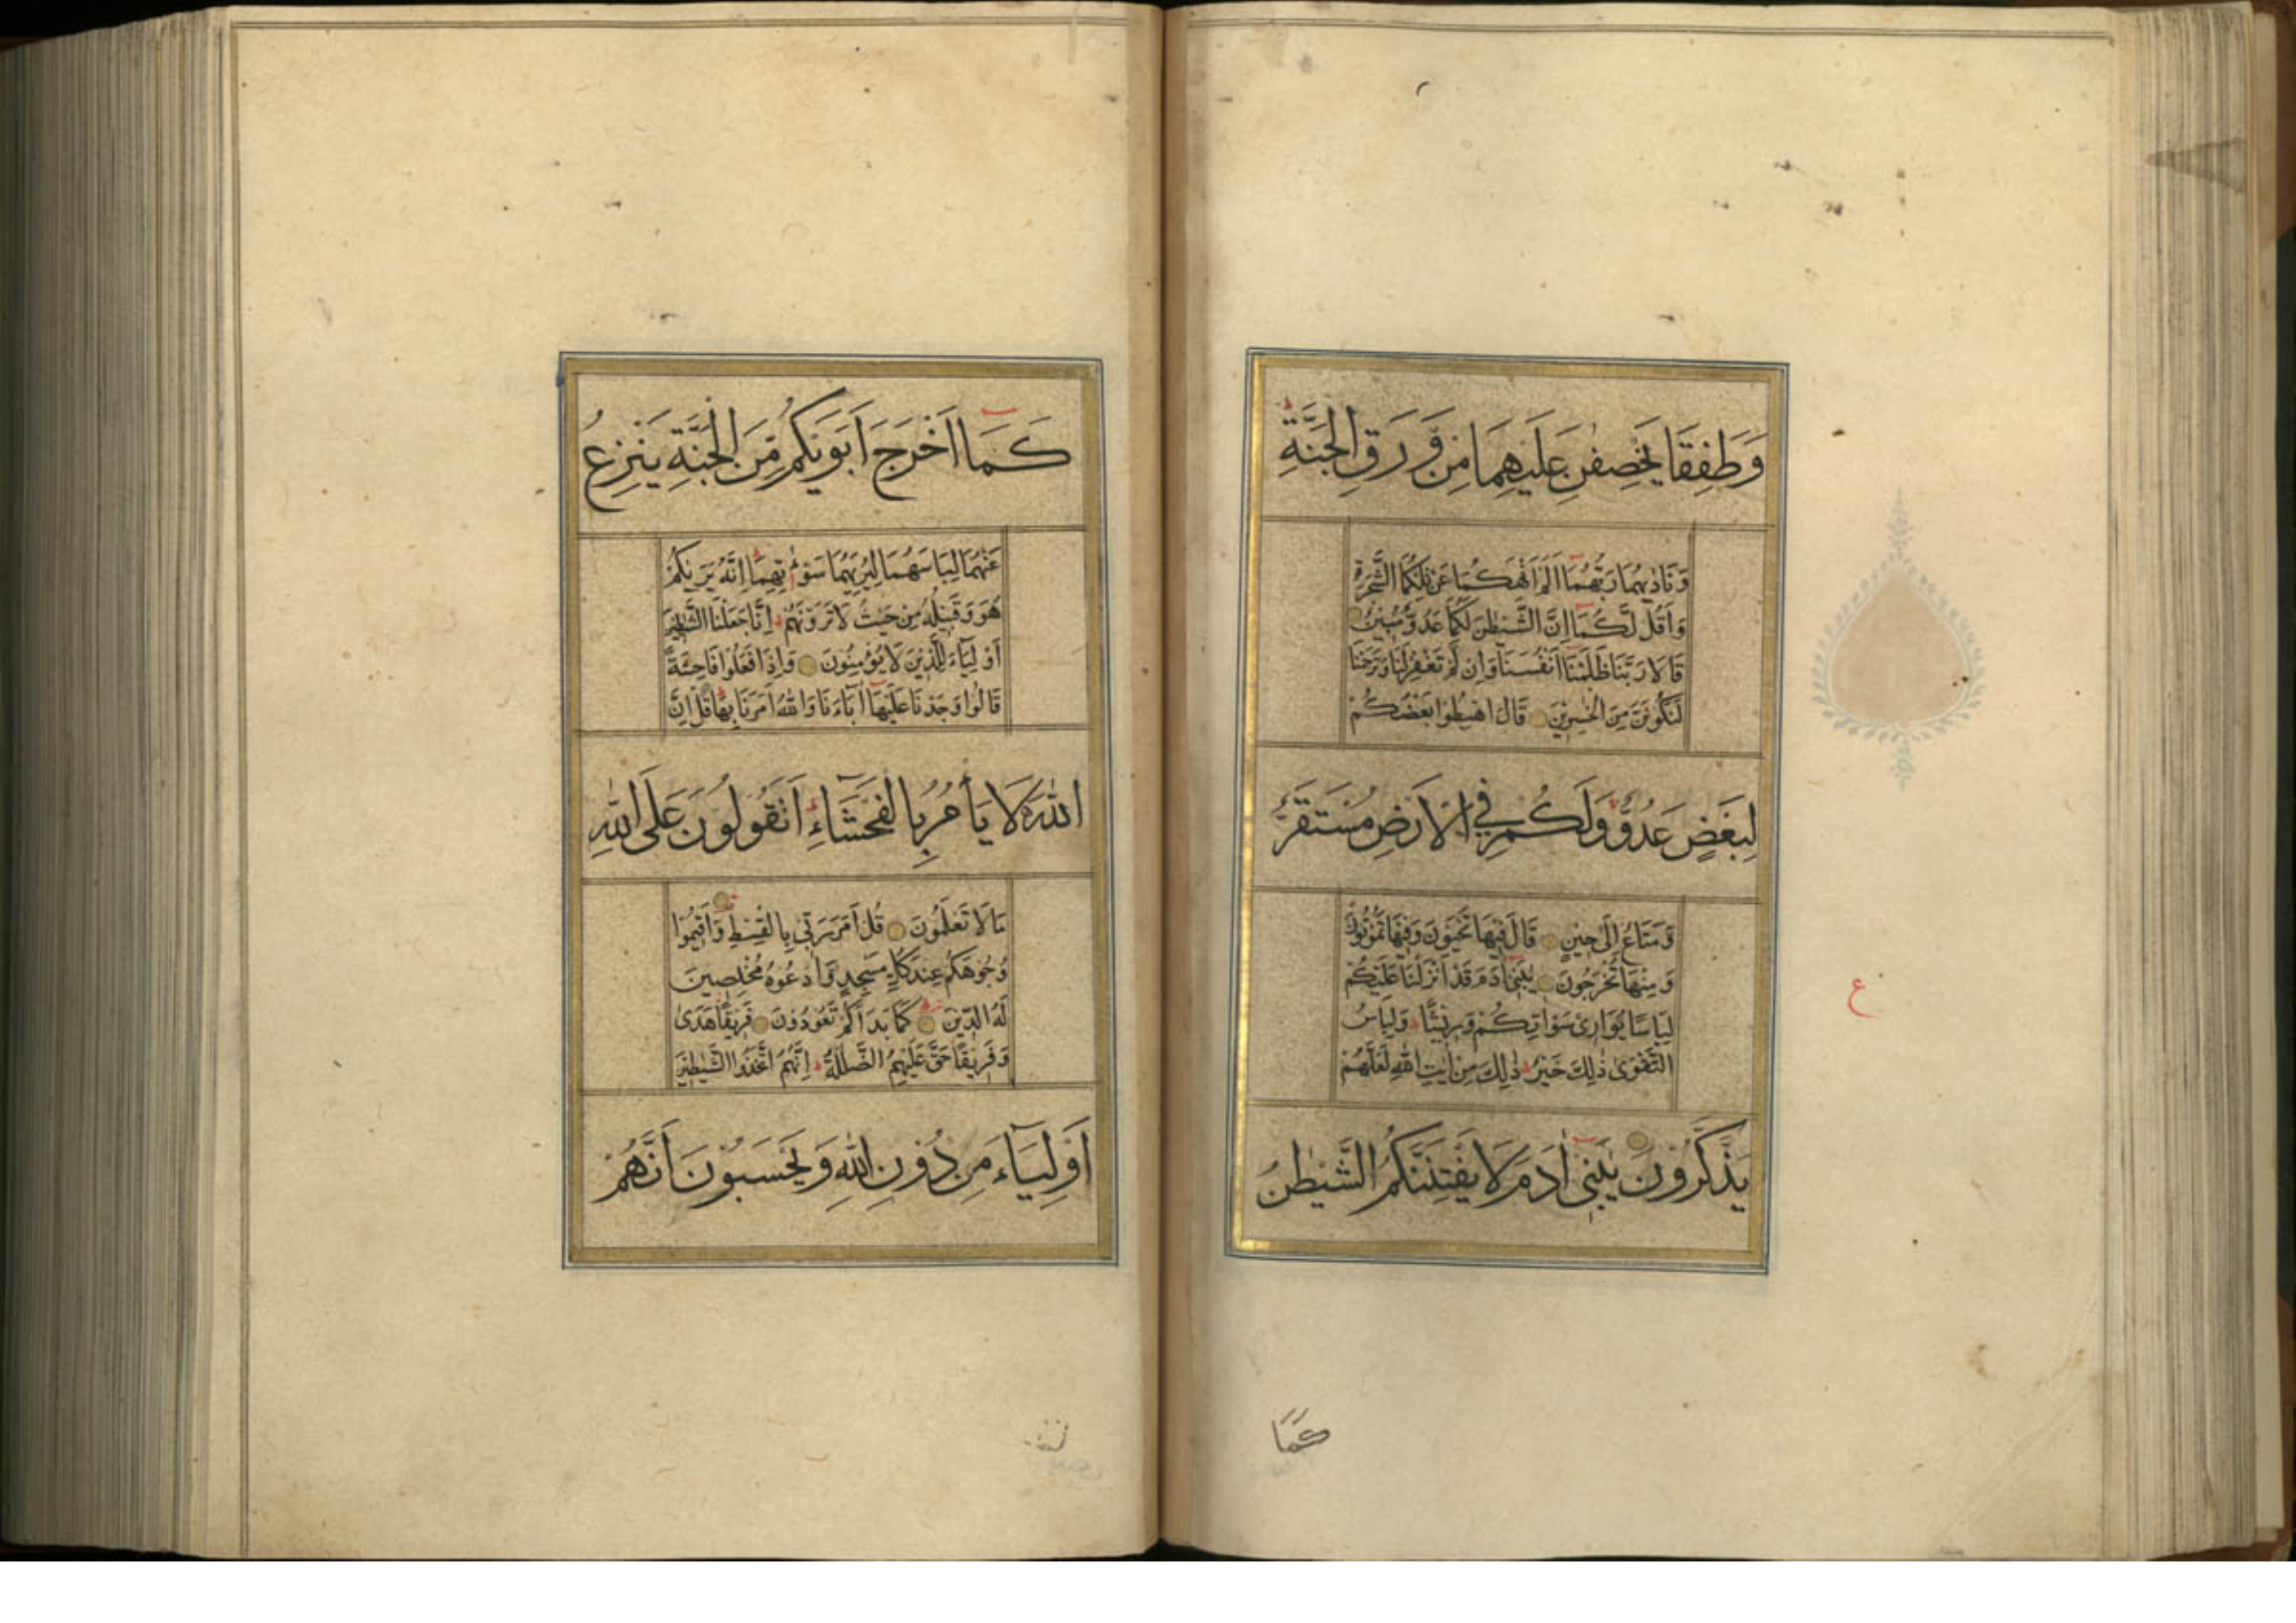 وَطَفِقَا يَخْصِفٰنِ عَلَيْهِمَا مِنْ وَّرَقِ الْجَنَّةِ ط
وَنَادٰىهُمَا رَبُّهُمَا اَلَمْ اَنْهَكُمَا عَنْ تِلْكُمَا الشَّجَرَةِ
وَاَقُلْ لَّكُمَا اِنَّ الشَّيْطٰنَ لَكُمَا عَدُوٌّ مُّبِيْنٌ
قَالَا رَبَّنَا ظَلَمْنَا اَنْفُسَنَا وَاِنْ لَّمْ تَغْفِرْ لَنَا وَتَرْحَمْنَا
لَنَكُوْنَنَّ مِنَ الْخٰسِرِيْنَ قَالَ اهْبِطُوْا بَعْضُكُمْ
لِبَعْضٍ عَدُوٌّ وَلَكُمْ فِى الْاَرْضِ مُسْتَقَرٌّ
وَّمَتَاعٌ اِلٰى حِيْنٍ قَالَ فِيْهَا تَحْيَوْنَ وَفِيْهَا تَمُوْتُوْنَ
وَمِنْهَا تُخْرَجُوْنَ يٰبَنِىْ اٰدَمَ قَدْ اَنْزَلْنَا عَلَيْكُمْ
لِبَاسًا يُّوَارِىْ سَوْاٰتِكُمْ وَرِيْشًا ط وَلِبَاسُ
التَّقْوٰى ذٰلِكَ خَيْرٌ ط ذٰلِكَ مِنْ اٰيٰتِ اللّٰهِ لَعَلَّهُمْ
يَذَّكَّرُوْنَ يٰبَنِىْ اٰدَمَ لَا يَفْتِنَنَّكُمُ الشَّيْطٰنُ
ع
كَمَا
كَمَا اَخْرَجَ اَبَوَيْكُمْ مِّنَ الْجَنَّةِ يَنْزِعُ
عَنْهُمَا لِبَاسَهُمَا لِيُرِيَهُمَا سَوْءٰتِهِمَا ط اِنَّهُ يَرٰىكُمْ
هُوَ وَقَبِيْلُهُ مِنْ حَيْثُ لَا تَرَوْنَهُمْ ط اِنَّا جَعَلْنَا الشَّيٰطِيْنَ
اَوْلِيَآءَ لِلَّذِيْنَ لَا يُؤْمِنُوْنَ وَاِذَا فَعَلُوْا فَاحِشَةً
قَالُوْا وَجَدْنَا عَلَيْهَا اٰبَآءَنَا وَاللّٰهُ اَمَرَنَا بِهَا ط قُلْ اِنَّ
اللّٰهَ لَا يَاْمُرُ بِالْفَحْشَآءِ ط اَتَقُوْلُوْنَ عَلَى اللّٰهِ
مَا لَا تَعْلَمُوْنَ قُلْ اَمَرَ رَبِّىْ بِالْقِسْطِ وَاَقِيْمُوْا
وُجُوْهَكُمْ عِنْدَ كُلِّ مَسْجِدٍ وَّادْعُوْهُ مُخْلِصِيْنَ
لَهُ الدِّيْنَ كَمَا بَدَاَكُمْ تَعُوْدُوْنَ فَرِيْقًا هَدٰى
وَفَرِيْقًا حَقَّ عَلَيْهِمُ الضَّلٰلَةُ ط اِنَّهُمُ اتَّخَذُوا الشَّيٰطِيْنَ
اَوْلِيَآءَ مِنْ دُوْنِ اللّٰهِ وَيَحْسَبُوْنَ اَنَّهُمْ